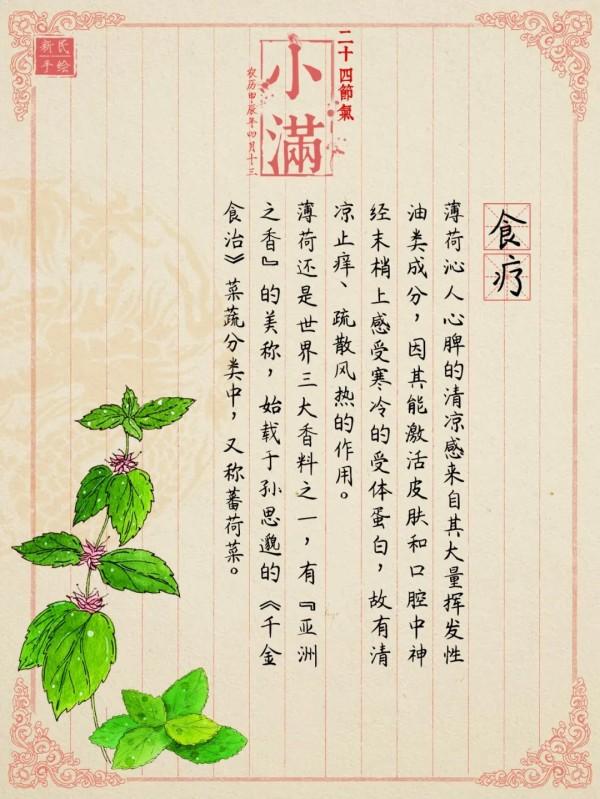 新民
手绘
二十四節氣
小滿
农历甲辰年四月十三
食疗
薄荷沁人心脾的清凉感来自其大量挥发性
油类成分，因其能激活皮肤和口腔中神
经末梢上感受寒冷的受体蛋白，故有清
凉止痒、疏散风热的作用。
薄荷还是世界三大香料之一，有『亚洲
之香』的美称，始载于孙思邈的《千金
食治》菜蔬分类中，又称蕃荷菜。